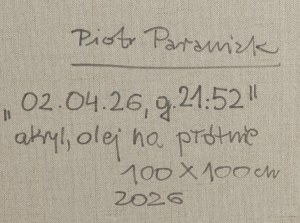 Piotr
„02.04.26, g.21:52"
akryl, olej na płótnie
100 x 100 cm
2026